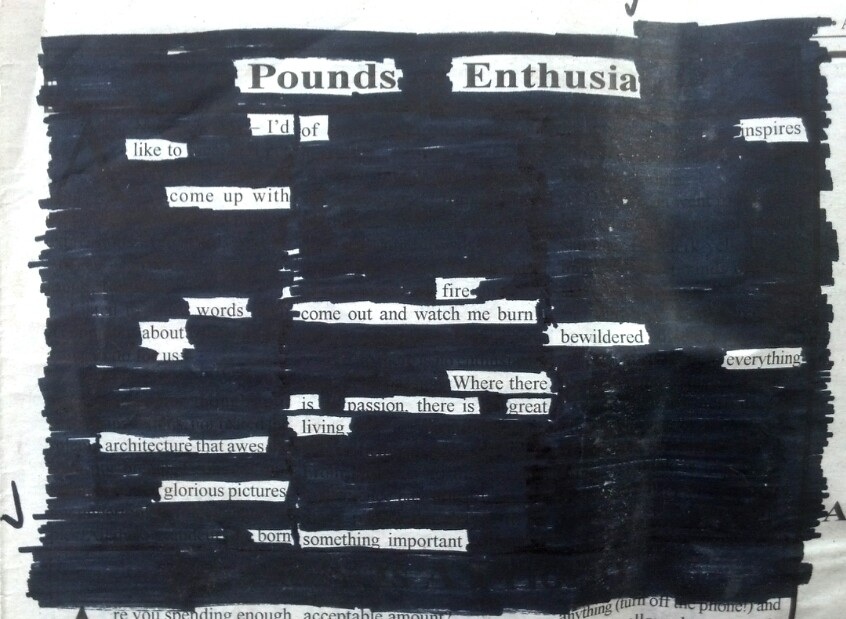 Pounds Enthusia
– I'd of inspires
like to
come up with
fire
words come out and watch me burn
about bewildered
us
everything
Where there
is passion, there is great
living
architecture that awes
glorious pictures
born something important
re you spending enough acceptable amount? anything (turn off the phone!) and